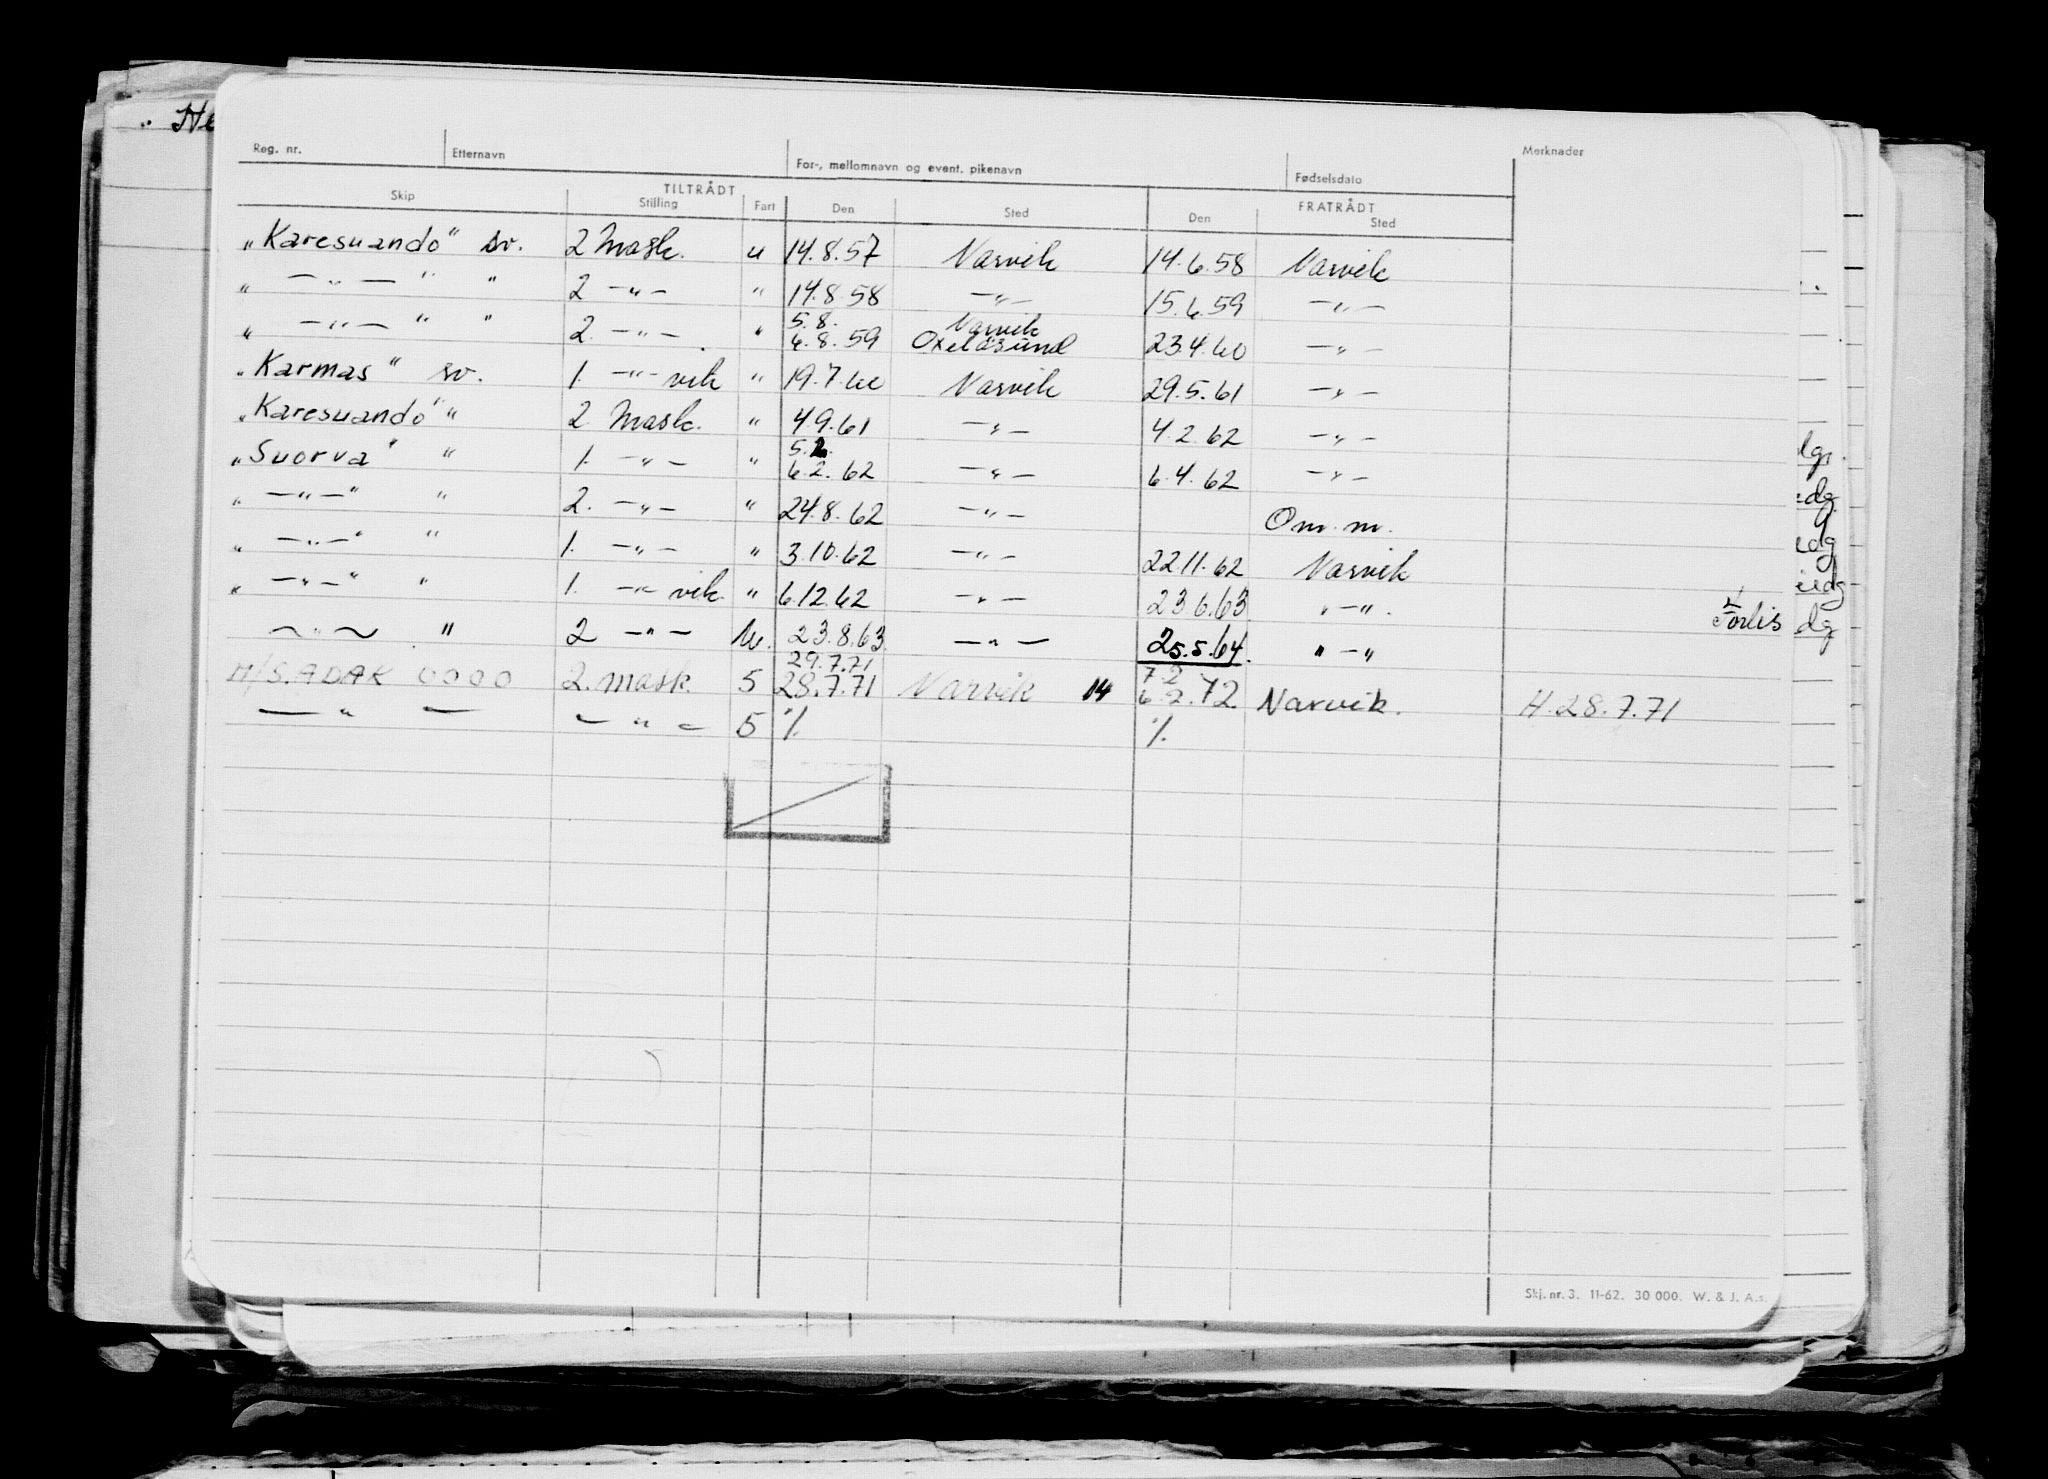 „ He
Reg. nr. Etternavn For-, mellomnavn og event. pikenavn Fødselsdato Merknader
TILTRÅDT FRATRÅDT
Skip Stilling Fart Den Sted Den Sted
„Karesuando" sv. 2 Mask. u 14.8.57 Narvik 14.6.58 Narvik
„ —„— " " 2 —„— " 14.8.58 —„— 15.6.59 —„—
5.8. Narvik
„ —„— " " 2. —„— " 6.8.59 Oxelösund 23.4.60 —„—
„Karmas" sv. 1. —„— vik " 19.7.60 Narvik 29.5.61 —„—
„Karesuando" " 2 Mask. " 4.9.61 —„— 4.2.62 —„—
5.2.
„Suorva" " 1. —„— " 6.2.62 —„— 6.4.62 —„—
„ —„—" " 2. —„— " 24.8.62 —„— Om. m.
„ —„—" " 1. —„— " 3.10.62 —„— 22.11.62 Narvik
„ —„—" " 1. —„— vik. " 6.12.62 —„— 23.6.63 „—„.
—„— " 2 —„— U. 23.8.63 —„— 25.5.64. „—„ Forlis
29.7.71 7.2
M/S.ADAK 0000 2. mask. 5 28.7.71 Narvik 14 6.2.72 Narvik. H.28.7.71
— „ — — „ — 5 %. %.
Skj. nr. 3. 11-62. 30 000. W. & J. A.s.